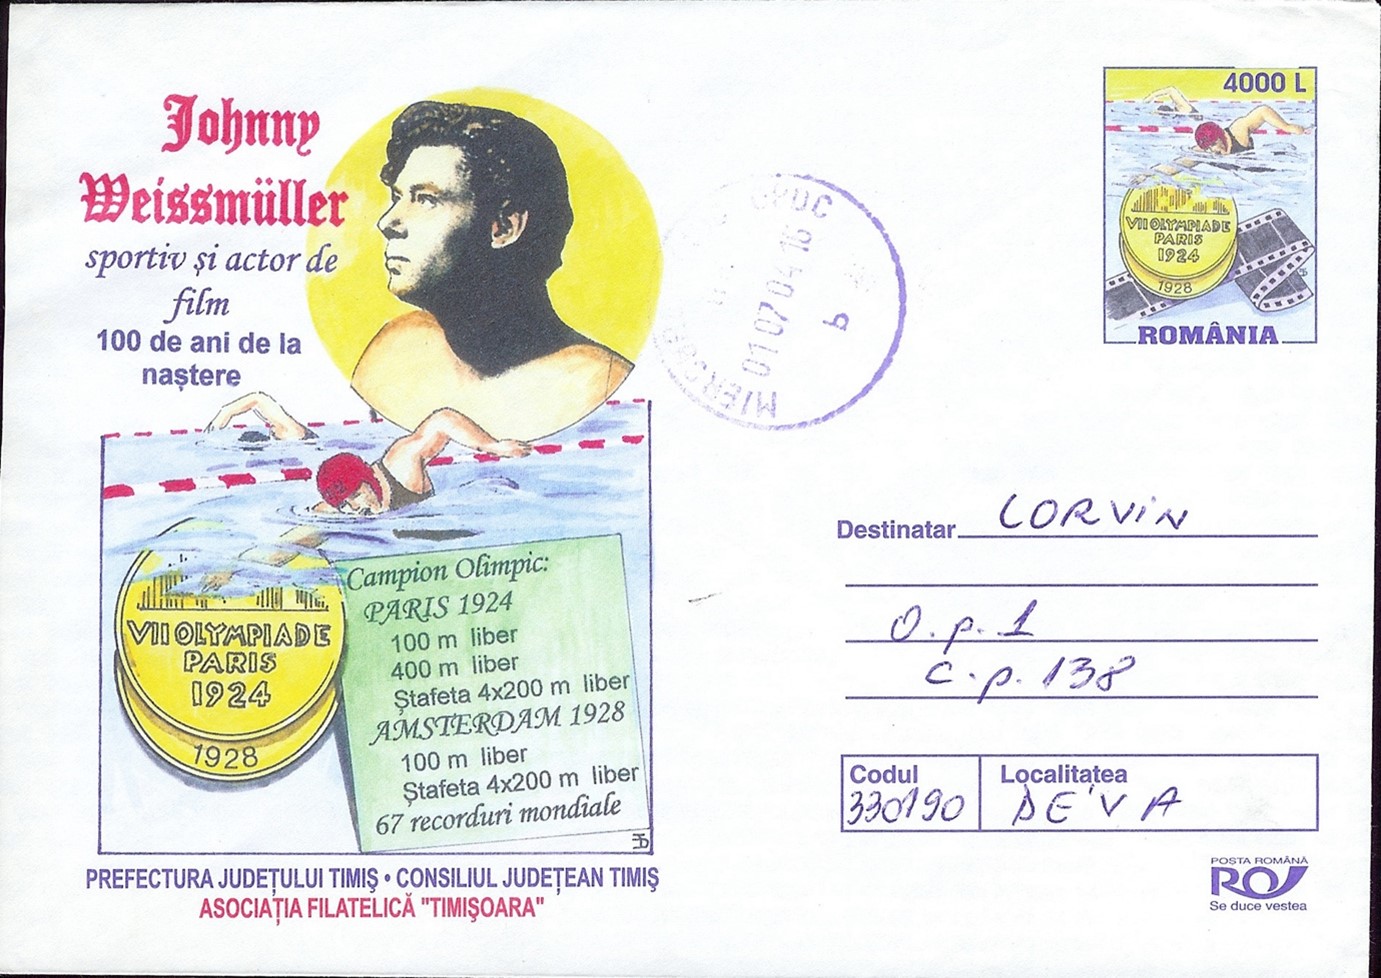 Johnny
Weissmüller
sportiv și actor de
film
100 de ani de la
naștere
Campion Olimpic:
PARIS 1924
100 m liber
400 m liber
Ștafeta 4x200 m liber
AMSTERDAM 1928
100 m liber
Ștafeta 4x200 m liber
67 recorduri mondiale
VII OLYMPIADE
PARIS
1924
1928
PREFECTURA JUDEȚULUI TIMIȘ • CONSILIUL JUDEȚEAN TIMIȘ
ASOCIAȚIA FILATELICĂ "TIMIȘOARA"
01 07 04 16
b
4000 L
VII OLYMPIADE
PARIS
1924
1928
ROMÂNIA
Destinatar CORVIN
O.p. 1
C.p. 138
Codul
330190
Localitatea
DEVA
POSTA ROMÂNĂ
RO
Se duce vestea